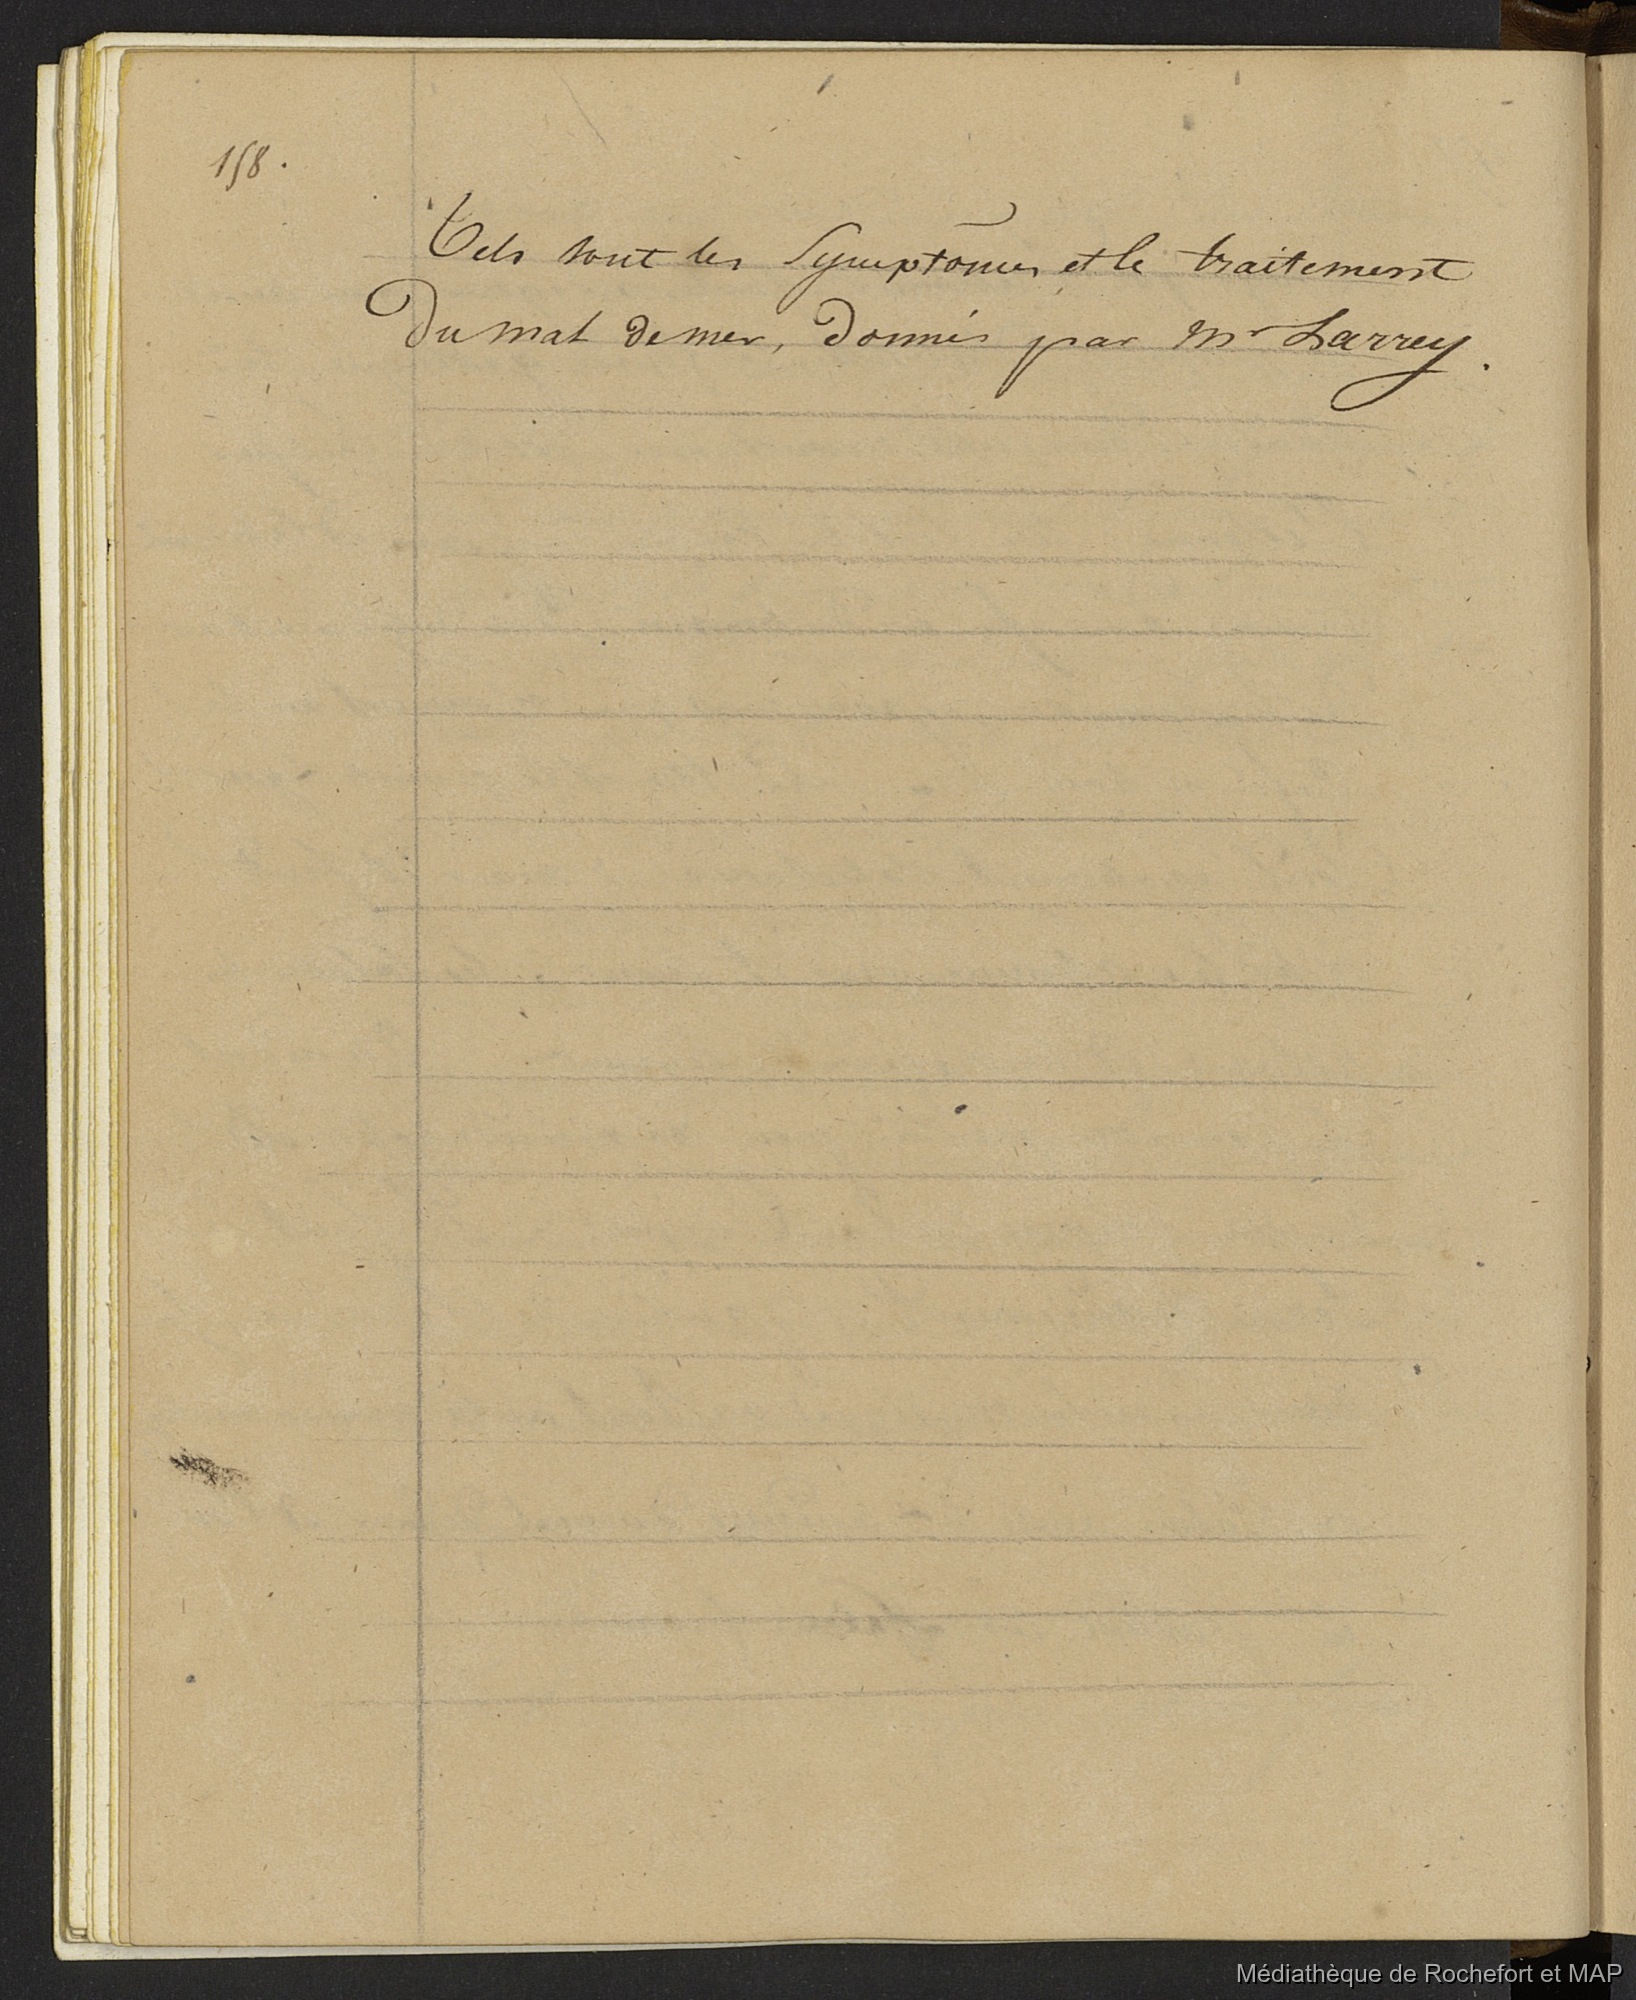 158.
Tels sont les Symptômes et le traitement
Du mal de mer, Donnés par Mr Larrey.
Médiathèque de Rochefort et MAP